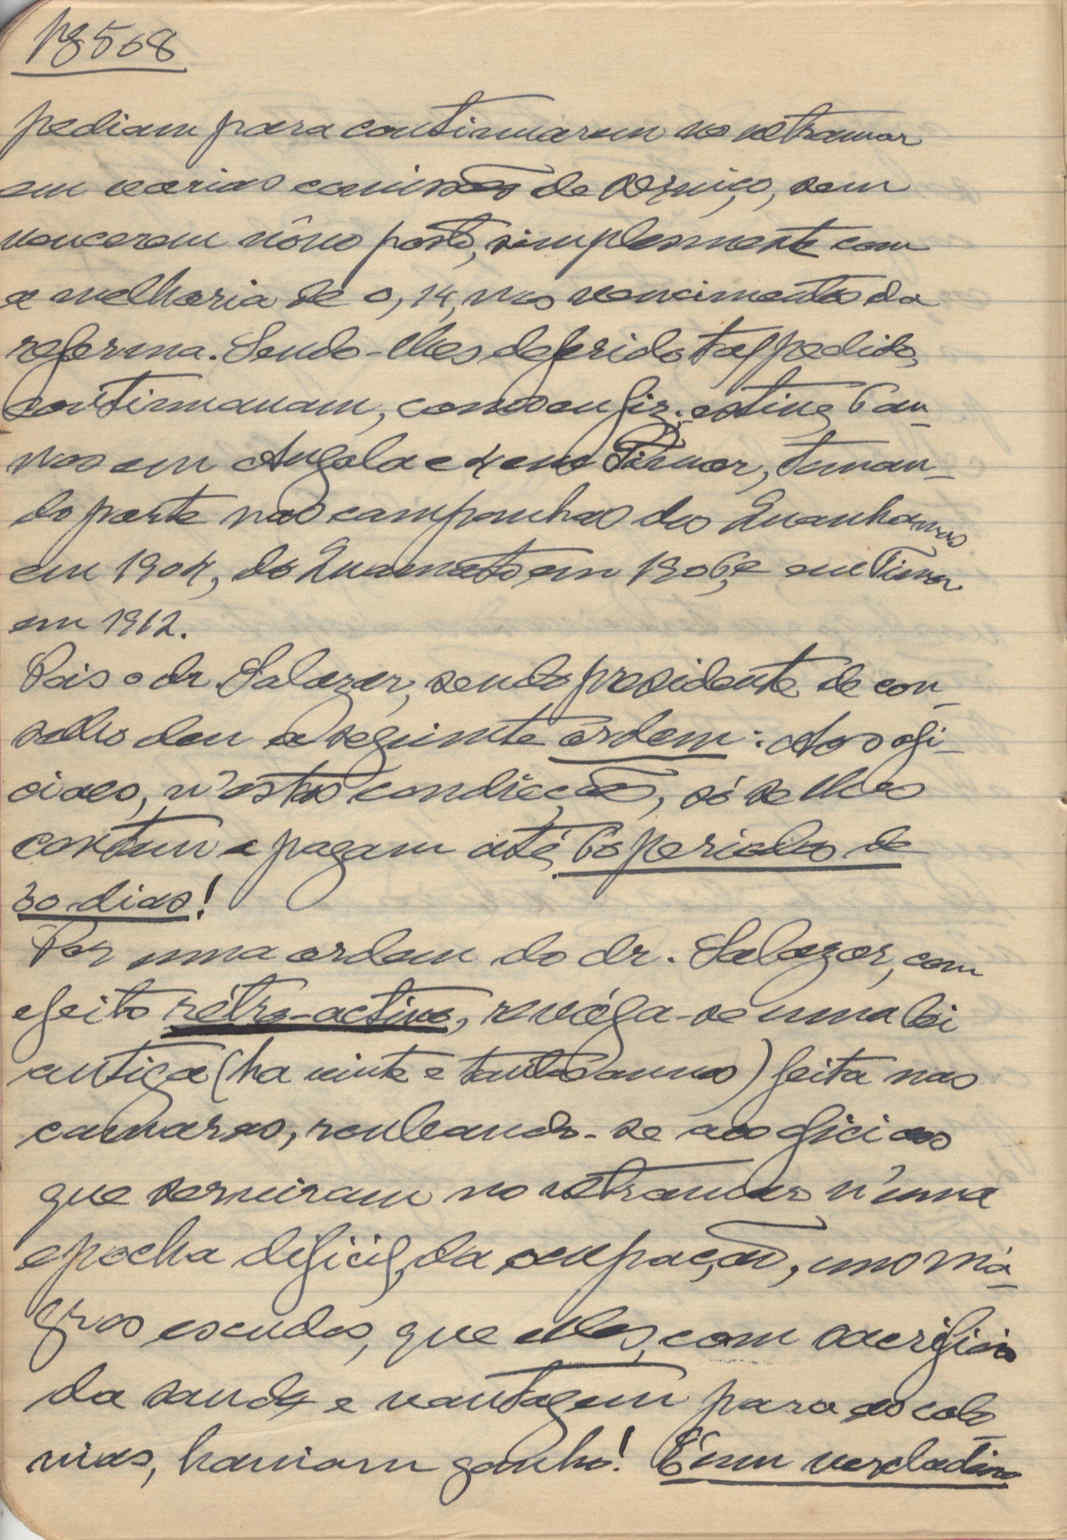 pediam para continuarem no ultramar
em varias comissões de serviço, sem
vencerem nôvo posto, simplesmente com
a melhoria de 0,14, nos vencimentos da
reforma. Sendo-lhes deferido tal pedido,
continuavam, como eu fiz: estive 6 an-
nos em Angola e 4 em Timor, toman-
do parte nas campanhas dos Cuanhamas
em 1904, do Cuamato, em 1906, e em Timor
em 1912.
Pois o dr Salazar, sendo presidente de con-
selho deu a seguinte ordem: Aos ofi-
ciaes, n'estas condicções, só se lhes
contam e pagam até, 60 periodos de
30 dias!
Por uma ordem do dr. Salazar, com
efeito rétro-activo, revóga-se uma lei
antiga (ha vinte e tantos annos) feita nas
camaras, roubando-se aos oficiaes
que serviram no ultramar n'uma
epocha dificil, da ocupação, uns má-
gros escudos, que elles, com sacrificio
da saude e vantagem para as colo-
nias, haviam ganho! É um verdadeiro